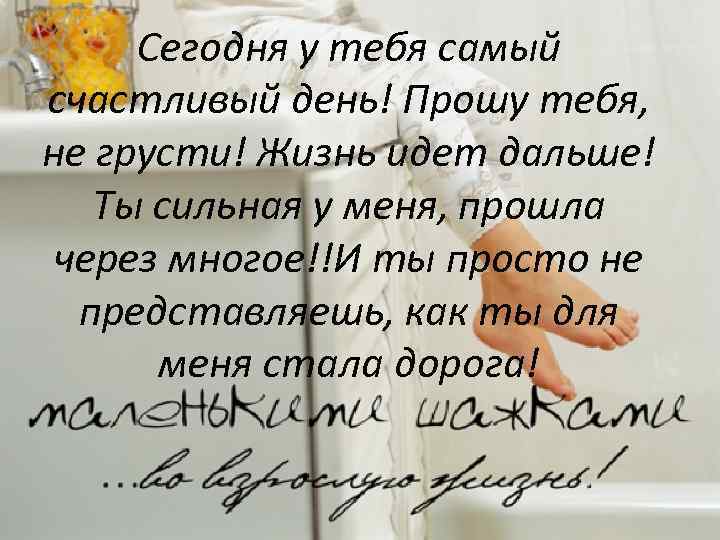 Сегодня у тебя самый
счастливый день! Прошу тебя,
не грусти! Жизнь идет дальше!
Ты сильная у меня, прошла
через многое!!И ты просто не
представляешь, как ты для
меня стала дорога!
маленькими шажками
...во взрослую жизнь!